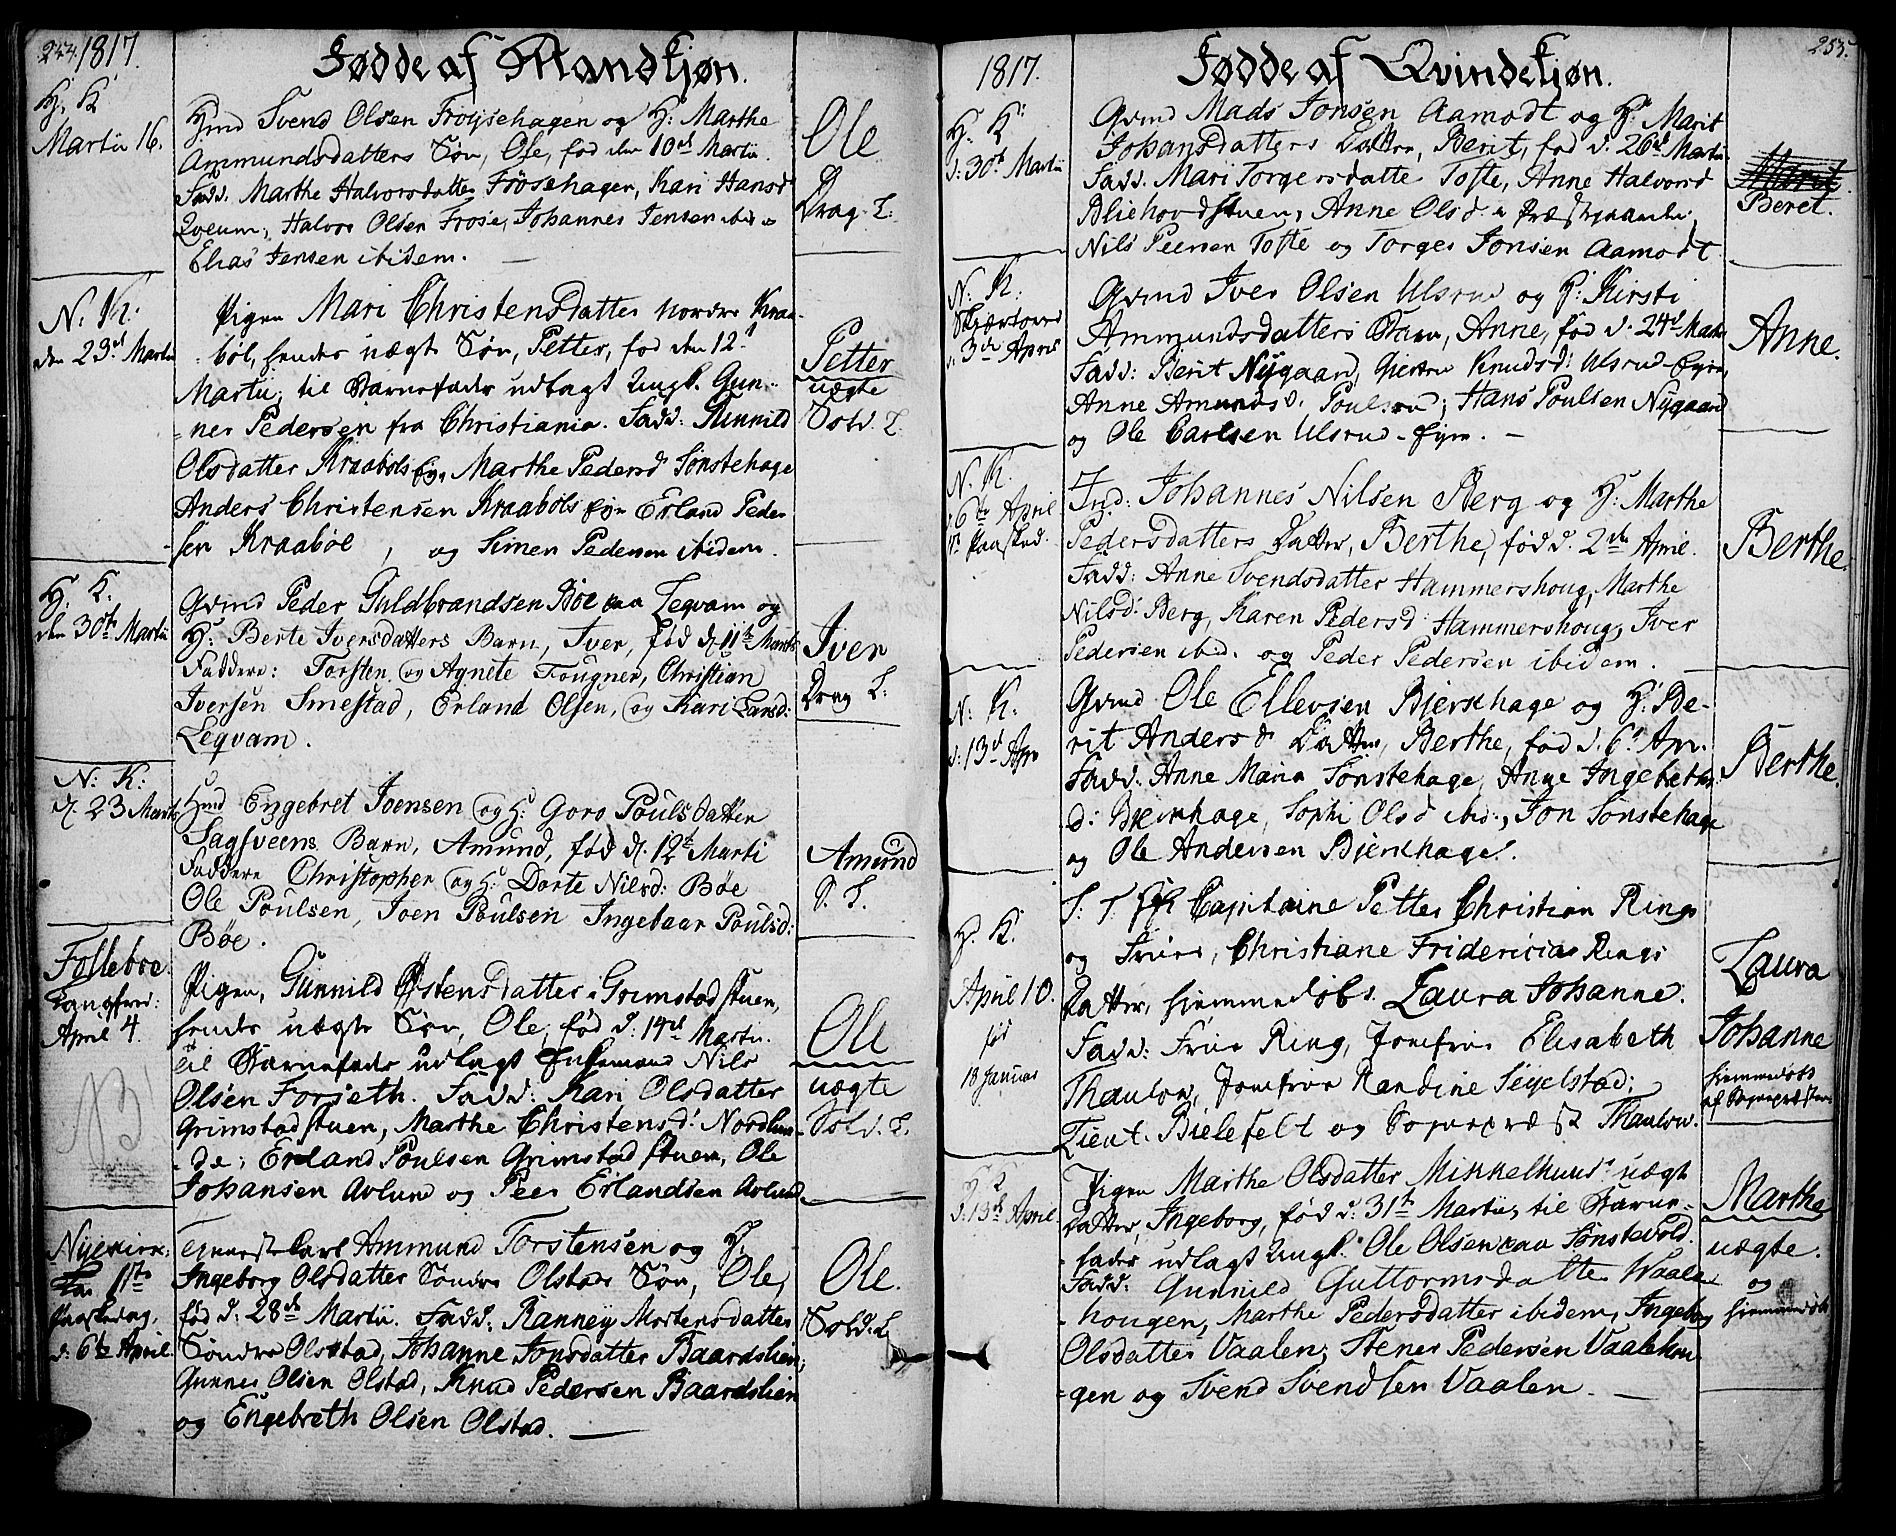 254. 1817.
Fødde af Mandkjøn.
H. K.
Martii 16.
Hmd Svend Olsen Frøysehagen og H: Marthe
Ammundsdatters Søn, Ole, fød den 10de Martii.
Fadd. Marthe Halvorsdatter Frøsehagen, Kari Hansd
Qveum, Halvor Olsen Frøse, Johannes Jensen ibid. og
Elias Jensen ibidem.
Ole
Drag. L.
N. K.
den 23de Martii
Pigen Mari Christensdatter nordre Kraa-
bøl, hendes uægte Søn, Petter, fød den 12te
Martii, til Barnefader udlagt Ungk. Gun-
ner Pedersen fra Christiania. Fadd: Gunnild
Olsdatter Kraabøls Ey. Marthe Pedersd Sønstehage
Anders Christensen Kraabøls Eje Erland Peder
sen Kraabøe, og Simen Pedersen ibidem.
Petter
uægte
Sold. L.
H. K.
den 30te Martii
Gvmd Peder Guldbrandsen Bøe paa Leqvam og
H: Berte Iversdatters Barn, Iver, fød d. 11te Martii
Faddere: Torsten og Agnete Fougner, Christian
Iversen Smestad, Erland Olsen, og Kari Larsd:
Leqvam.
Iver
Drag L:
N: K:
d. 23 Martii
Hmd Engebret Joensen og H: Goro Poulsdatter
Sagsveens Barn, Amund, fød d. 12te Marti
Faddere Christopher og H: Dorte Nilsd: Bøe
Ole Poulsen, Joen Poulsen Ingebaar Poulsd:
Bøe.
Amund
S. L.
Folleboe
Langfred:
April 4.
Pigen, Gunnild Østensdatter Grimstadstuen,
hendes uægte Søn, Ole, fød d: 14de Martii.
til Barnefader udlagt Huusmand Nils
Olsen Forseth. Fadd: Kari Olsdatter
Grimstadstuen, Marthe Christensd: Nordlun-
de; Erland Poulsen Grimstadstuen, Ole
Johansen Avlund og Peer Erlandsen Avlund.
Ole
uægte
Sold. L.
Nyekirk:
1te
Paaskedag,
d: 6te April.
Tienestekarl Ammund Torstensen og H:
Ingeborg Olsdatter Søndre Olstads Søn, Ole,
fød d: 28de Martii. Fadd: Ranney Mortensdatter
Søndre Olstad, Johanne Jonsdatter Baardslien,
Gunner Olsen Olstad, Knud Pedersen Baardslien
og Engebreth Olsen Olstad.
Ole.
Sold. L
255.
1817.
Fødde af Qvindekjøn.
H. K:
d: 30te Martii
Gvmd Mads Jonsen Aamodt og H: Marit
Johansdatters Datter, Berit, fød d. 26de Martii.
Fadd. Mari Torgersdatter Tofte, Anne Halvorsd
Bliehovdstuen, Anne Olsd. Præstegaarden,
Nils Peersen Tofte og Torger Jonsen Aamodt.
Beret.
N: K:
Skiærtorsd
d. 3de April
Gvmd Iver Olsen Ulsrud og H: Kirsti
Ammundsdatters Barn, Anne, fød d. 24de Martii
Fadd: Berit Nygaard, Giertru Knudsd: Ulsrud-Ejen,
Anne Amunds d. Poulsrud; Hans Poulsen Nygaard
og Ole Carlsen Ulsrud-Ejen.
Anne.
N. K.
d. 6te April
1te Paasked.
Ind: Johannes Nilsen Berg og H: Marthe
Pedersdatters Datter, Berthe, fød d. 2den April.
Fadd: Anne Svendsdatter Hammershoug, Marthe
Nilsd: Berg, Karen Pedersd Hammershoug, Iver
Pedersen ibid. og Peder Pedersen ibidem.
Berthe.
N: K.
d: 13de Apr
Gvmd Ole Ellevsen Bjerkhage og H: Be-
rit Anders d. Datter, Berthe, fød d. 6te Apr.
Fadd. Anne Maria Sønstehage, Anne Ingebrets
d: Bjerkhage, Sophi Olsd ibid., Jon Sønstehage
og Ole Andersen Bjerkhage.
Berthe.
H. K.
April 10.
fød
18 Januar
S. T. Hr Capitaine Petter Christian Ring
og Frue, Christiane Fridericia Rings
Datter, hjemmedøbt. Laura Johanne.
Fadd: Frue Ring, Jomfrue Elisabeth
Thaulow, Jomfrue Randine Segelstad;
Lieut. Bielefelt og Sognepræst Thaulow.
Laura
Johanne
hjemmedøbt
af Sognepræsten
H. K.
d: 13de April
Pigen Marthe Olsdatter Mikkelhuus' uægte
Datter, Ingeborg, fød d: 31te Martii, til Barne-
fader udlagt Ungk. Ole Olsen paa Sønstevold.
Fadd: Gunnild Guttormsdatter Waale-
hougen, Marthe Pedersdatter ibidem, Ingeborg
Olsdatter Vaalen, Stener Pedersen Vaalehou-
gen og Svend Svendsen Vaalen.
Marthe
uægte.
og
hjemmedøbt